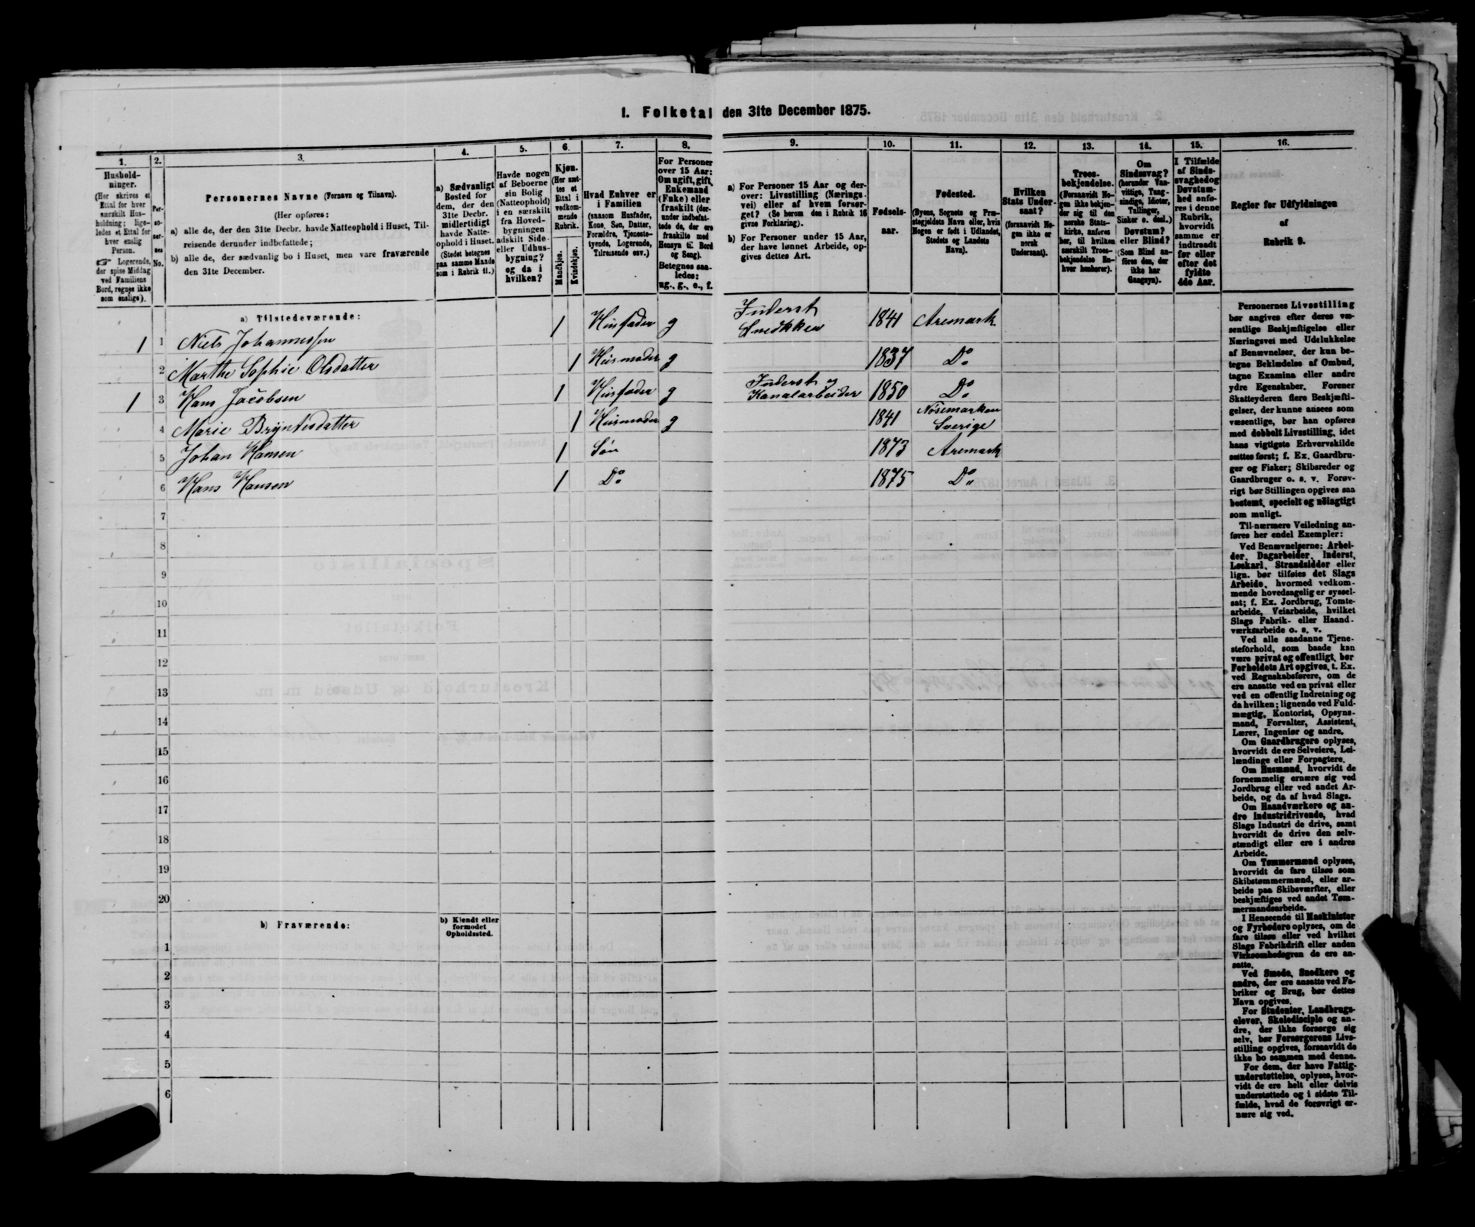 1. Folketal den 31te December 1875.
1. 2. 3. 4. 5. 6. 7. 8. 9. 10. 11. 12. 13. 14. 15. 16.
Husholdninger.
(Her skrives et
Ettal for hver
særskilt Husholdning;
ligeledes et Ettal for
hver enslig
Person.
Logerende,
der spise Middag
ved Familiens
Bord, regnes ikke
som enslige).
Personernes No.
Personernes Navne (Fornavn og Tilnavn).
(Her opføres:
a) alle de, der den 31te Decbr. havde Natteophold i Huset, Tilreisende derunder indbefattede;
b) alle de, der sædvanlig bo i Huset, men vare fraværende
den 31te December.
a) Sædvanligt
Bosted for
dem, der den
31te Decbr.
midlertidigt
havde Natteophold i Huset.
(Stedet betegnes
paa samme Maade
som i Rubrik 11.)
Havde nogen
af Beboerne
sin Bolig
(Natteophold)
i en særskilt
fra Hovedbygningen
adskilt Side-
eller Udhusbygning?
og da i
hvilken?
Kjøn.
(Her sættes et
Ettal i
vedkommende
Rubrik.
Mandkjøn.
Kvindekjøn.
Hvad Enhver er
i Familien
(saasom Husfader,
Kone, Søn, Datter,
Forældre, Tjenestetyende, Logerende,
Tilreisende osv.)
For Personer
over 15 Aar:
Om ugift, gift,
Enkemand
(Enke) eller
fraskilt (derunder indbefattede de, der ere
fraskilte med
Hensyn til Bord
og Seng).
Betegnes saaledes:
ug., g., e., f.
a) For Personer 15 Aar og derover: Livsstilling (Næringsvei) eller af hvem forsørget? (Se herom den i Rubrik 16
givne Forklaring).
b) For Personer under 15 Aar,
der have lønnet Arbeide, opgives dettes Art.
Fødselsaar.
Fødested.
(Byens, Sognets og Præstegjeldets Navn eller, hvis
Nogen er født i Udlandet,
Stedets og Landets
Navn).
Hvilken
Stats Undersaat?
(forsaavidt Nogen ikke er
norsk
Undersaat).
Troesbekjendelse.
(Forsaavidt Nogen ikke bekjender sig til den
norske Statskirke, anføres
her, til hvilken
særskilt Troesbekjendelse Enhver henhører).
Om
Sindssvag?
(herunder Vanvittige, Tungsindige, Idioter,
Tullinger,
Sinker o. desl.)
Døvstum?
eller Blind?
(Som Blind anføres den, der
ikke har
Gangsyn).
I Tilfælde
af Sindssvaghed og
Døvstumhed anføres i denne
Rubrik,
hvorvidt
samme er
indtraadt
før eller
efter det
fyldte
4de Aar.
Regler for Udfyldningen
af
Rubrik 9.
a) Tilstedeværende:
1 1 Niels Johannessen 1 Husfader g Inderst Snedkker 1841 Aremark
2 Marthe Sophie Olsdatter 1 Husmoder g 1837 Do
1 3 Hans Jacobsen 1 Husfader g Inderst og Kanalarbeider 1850 Do
4 Marie Bryntesdatter 1 Husmoder g 1841 Nøsemarken Sverige
5 Johan Hansen 1 Søn 1873 Aremark
6 Hans Hansen 1 Do 1875 Do
7
8
9
10
11
12
13
14
15
16
17
18
19
20
b) Fraværende:
b) Kjendt eller
formodet
Opholdssted.
1
2
3
4
5
6
Personernes Livsstilling
bør angives efter deres væsentlige Beskjæftigelse eller
Næringsvei med Udelukkelse
af Benævnelser, der kun betegne Beklædelse af Ombud,
tagne Examina eller andre
ydre Egenskaber. Forener
Skatteyderen flere Beskjæftigelser, der kunne ansees som
væsentlige, bør han opføres
med dobbelt Livsstilling, idet
hans vigtigste Erhvervskilde
sættes først; f. Ex. Gaardbruger og Fisker; Skibsreder og
Gaardbruger o. s. v. Forøvrigt bør Stillingen opgives saa
bestemt, specielt og nøiagtigt
som muligt.
Til nærmere Veiledning anføres her endel Exempler:
Ved Benævnelserne: Arbeider, Dagarbeider, Inderst,
Løskarl, Strandsidder eller
lign. bør tilføies det Slags
Arbeide, hvormed vedkommende hovedsagelig er sysselsat; f. Ex. Jordbrug, Tomtearbeide, Veiarbeide, hvilket
Slags Fabrik- eller Haandværksarbeide o. s. v.
Ved alle saadanne Tjenesteforhold, som baade kan
være privat og offentligt, bør
Forholdets Art opgives, t. Ex.
ved Regnskabsførere, om de
ere ansatte ved en privat eller
ved en offentlig Indretning og
da hvilken; lignende ved Fuldmægtig, Kontorist, Opsynsmand, Forvalter, Assistent,
Lærer, Ingeniør og andre.
Om Gaardbrugere oplyses,
hvorvidt de ere Selveiere, Leilændinge eller Forpagtere.
Om Husmænd, hvorvidt de
fornemmelig ernære sig ved
Jordbrug eller ved andet Arbeide, og da af hvad Slags.
Om Haandværkere og andre Industridrivende, hvad
Slags Industri de drive, samt
hvorvidt de drive den selvstændigt eller ere i andres
Arbeide.
Om Tømmermænd oplyses,
hvorvidt de fare tilsøs som
Skibstømmermænd, eller arbeide paa Skibsværfter, eller
beskjæftiges ved andet Tømmermandsarbeide.
I Henseende til Maskinister
og Fyrbødere oplyses, om de
fare tilsøs eller ved hvilket
Slags Fabrikdrift eller anden
Virksomhedsgren de ere ansatte.
Ved Smede, Snedkere og
andre, der ere ansatte ved Fabriker og Brug, bør dettes
Navn opgives.
For Studenter, Landbrugselever, Skoledisciple og andre, der ikke forsørge sig
selv, bør Forsørgerens Livsstilling opgives, forsaavidt de
ikke bo sammen med denne.
For dem, der have Fattigunderstøttelse, oplyses, hvorvidt de ere helt eller delvis
understøttede og i sidste Tilfælde, hvad de forøvrigt ernære sig ved.